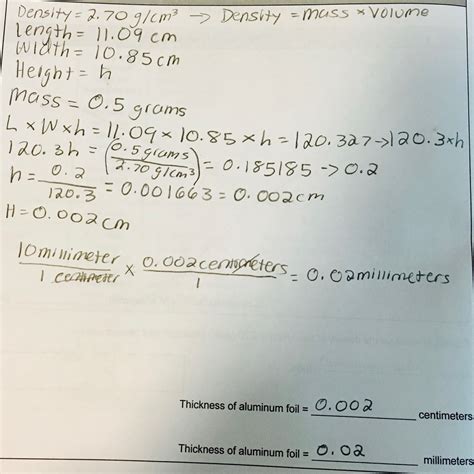 Density = 2.70 g/cm³ → Density = mass × Volume
Length = 11.09 cm
Width = 10.85 cm
Height = h
mass = 0.5 grams
L × W × h = 11.09 × 10.85 × h = 120.327 → 120.3 × h
120.3h = (0.5 grams / 2.70 g/cm³) = 0.185185 → 0.2
h = 0.2 / 120.3 = 0.001663 = 0.002 cm
H = 0.002 cm
10 millimeter / 1 centimeter × 0.002 centimeters / 1 = 0.02 millimeters
Thickness of aluminum foil = 0.002 centimeters
Thickness of aluminum foil = 0.02 millimeters